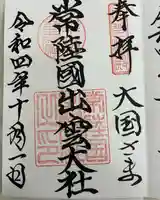 奉拝
大国さま
常陸國出雲大社
令和四年十月一日